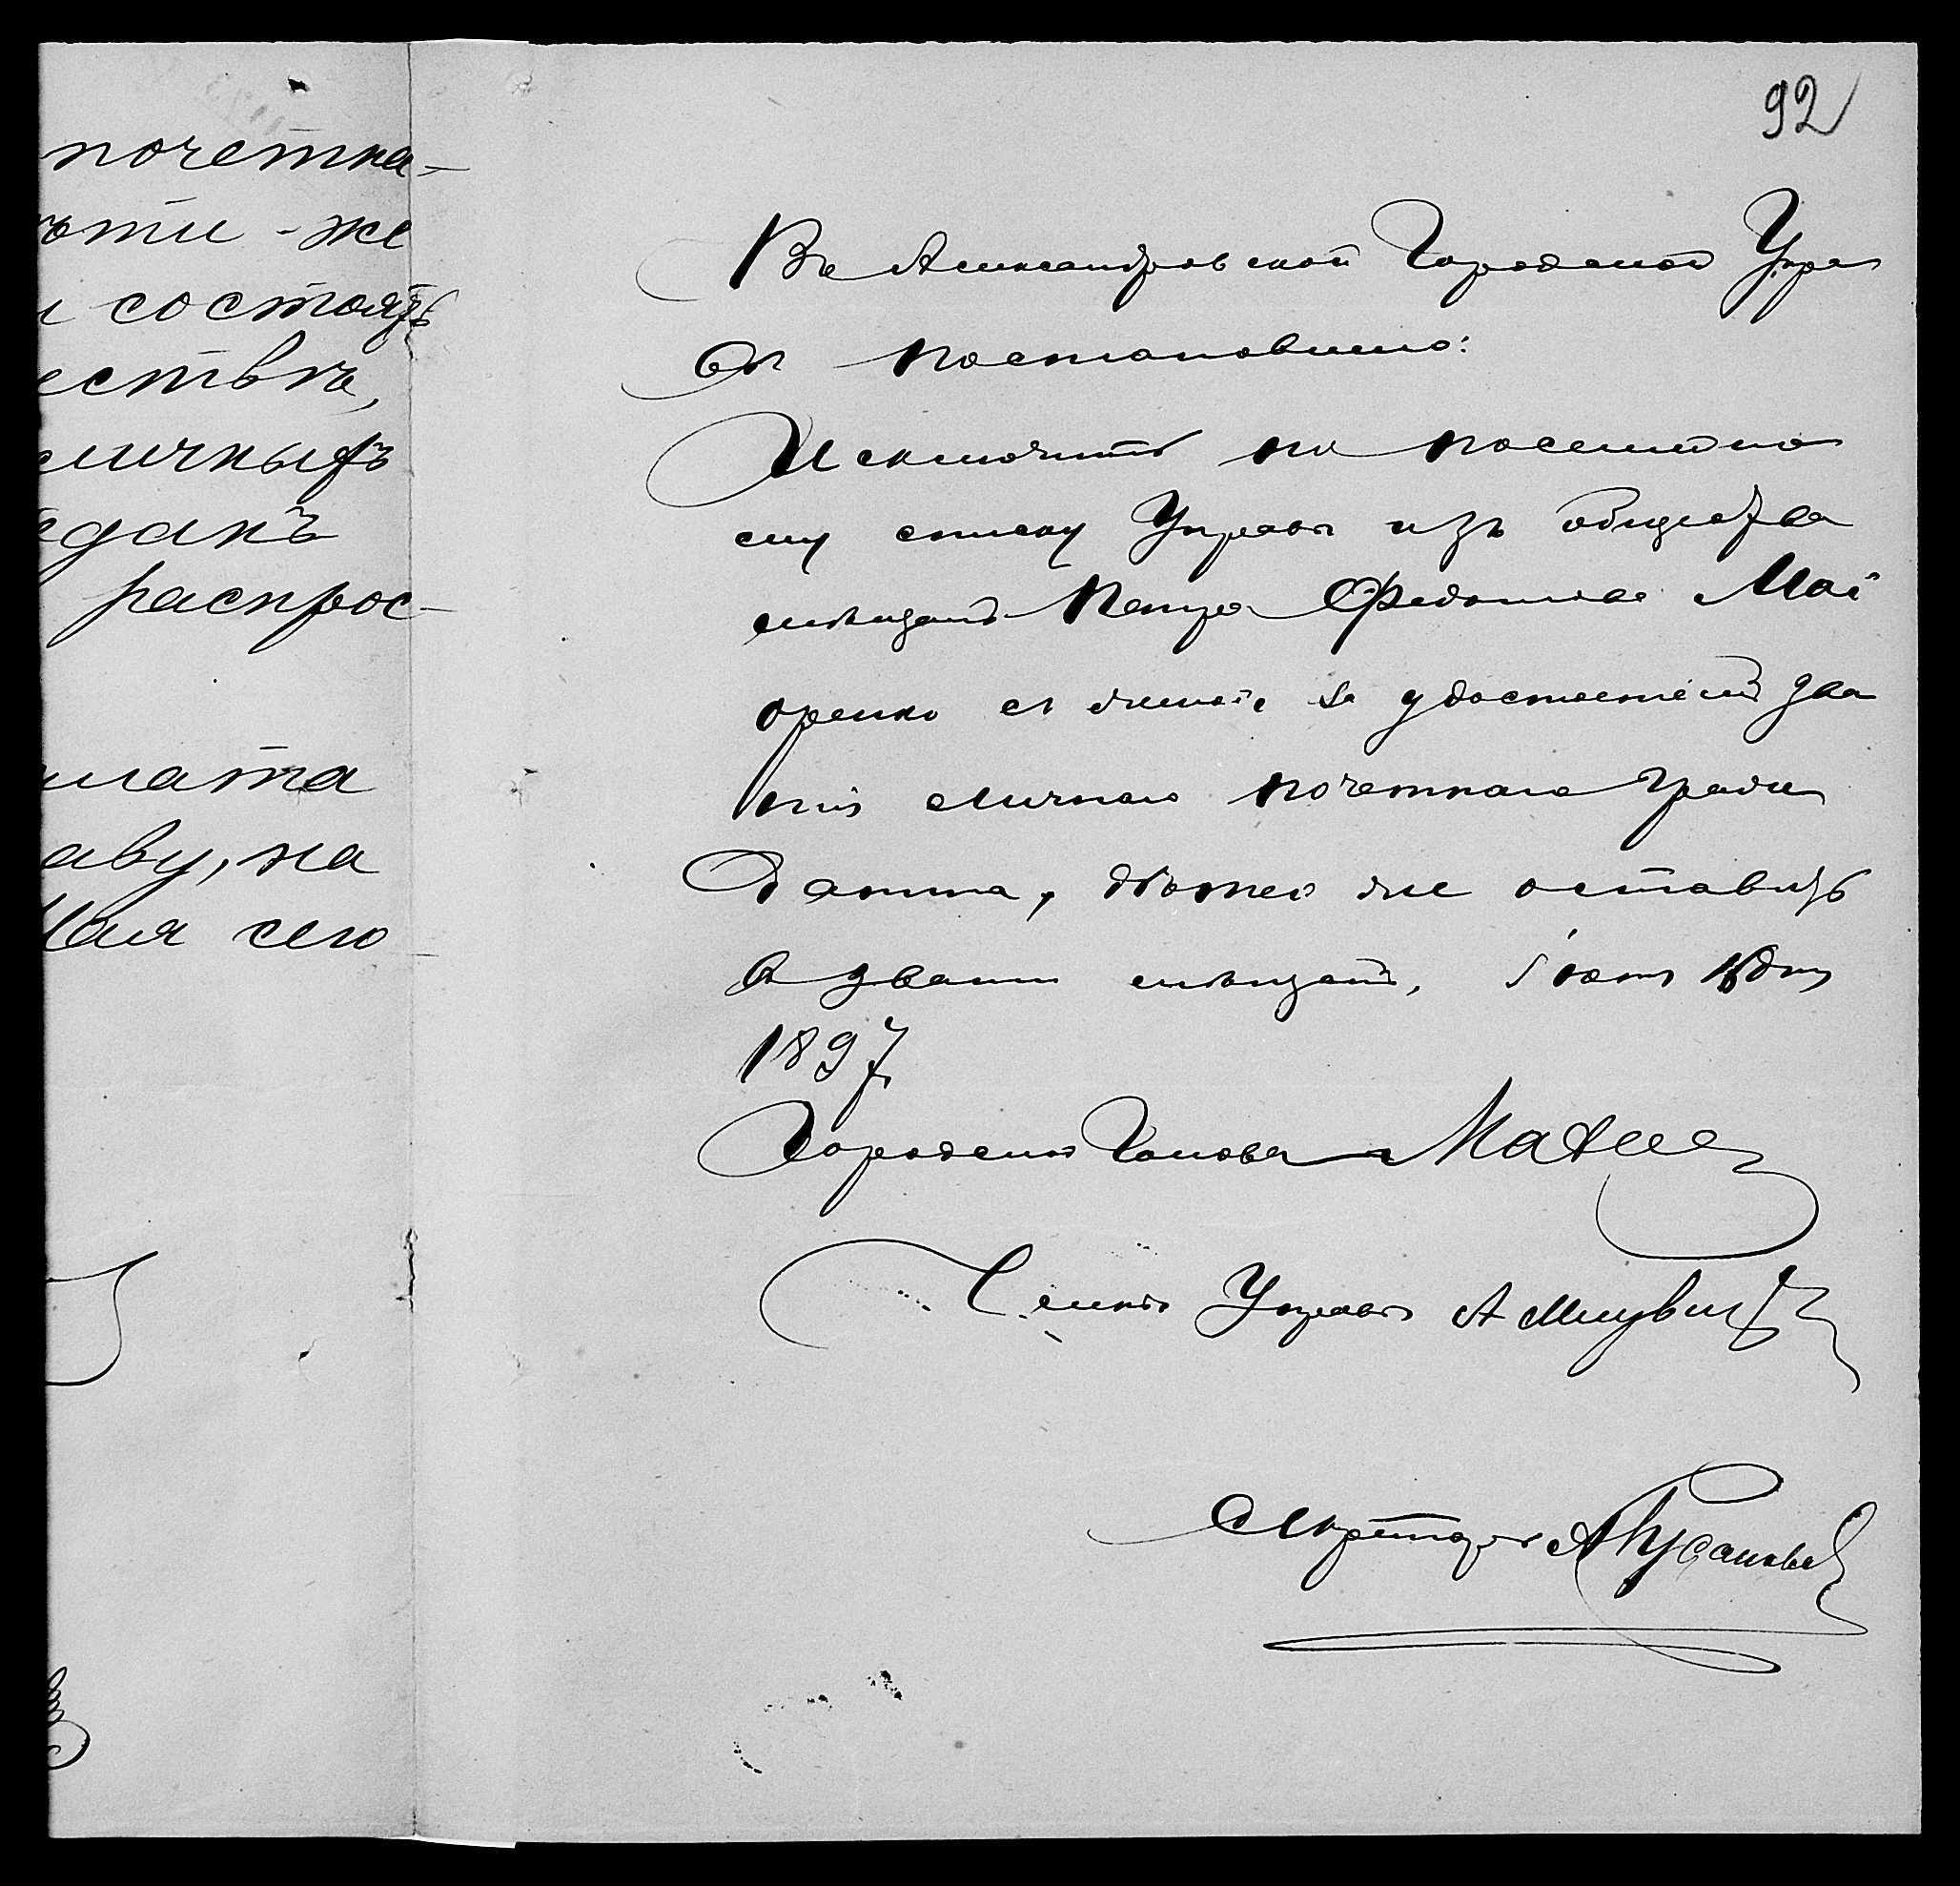 92
почетна-
ѣти-же
и состоятъ
ествѣ,
личныхъ
жданъ
распрос-
лата
аву, на
Мая сего
Въ Александровской Городской Упра
вѣ постановлено:
Исключить по посемейно
му списку Управы изъ общества
мѣщанъ Петра Федотова Май
оренко съ женою за удостоеніемъ зва
нія личнаго почетнаго граж
данина, дѣтей же оставить
въ званіи мѣщанъ, 1897
Городской Голова
Членъ Управы А
Секретарь А Русановъ